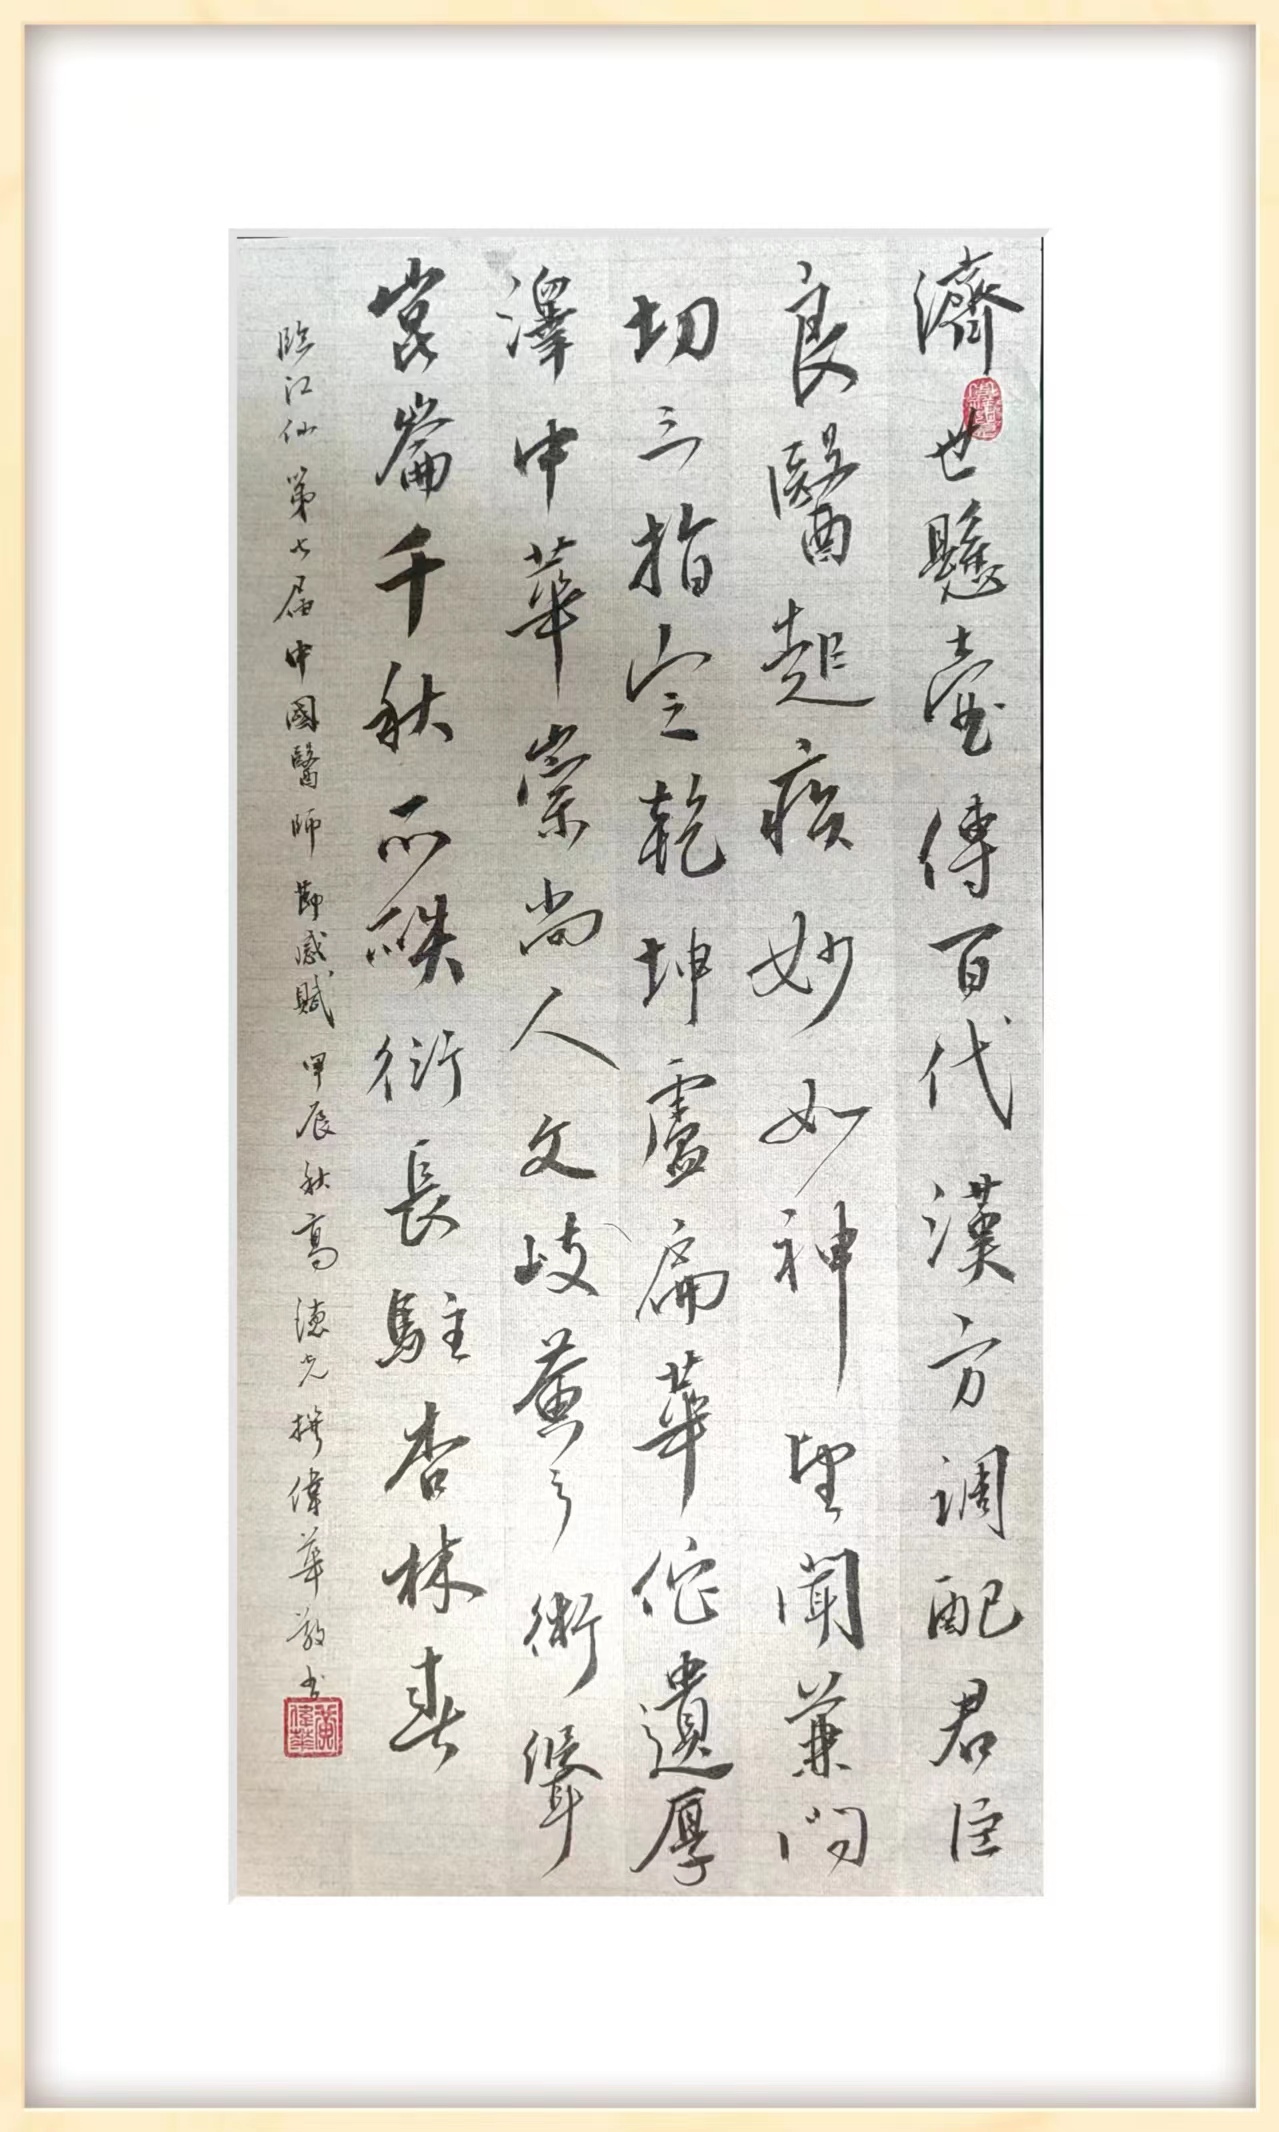 濟世懸壺傳百代漢方調配君臣
良醫起疾妙如神望聞兼問
切三指定乾坤盧扁華佗遺厚
澤中華崇尚人文岐黃之術聳
崑崙千秋瓜瓞衍長駐杏林春
臨江仙 第七屆中國醫師節感賦 甲辰秋高德光撰偉華敬书
黃偉華